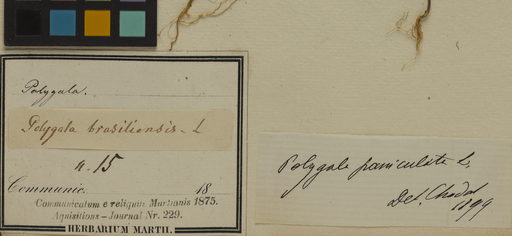 Polygala.
Polygala brasiliensis - L
n. 15
Communic. 18
Communicatum e reliquiis Martianis 1875.
Aquisitions - Journal Nr. 229.
HERBARIUM MARTII.
Polygala paniculata L.
Det. Chodat
1899